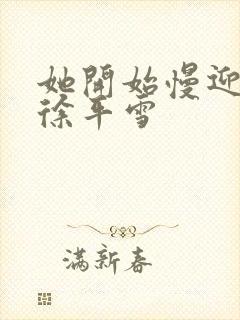 她開始慢迎
徐年雪
滿新春